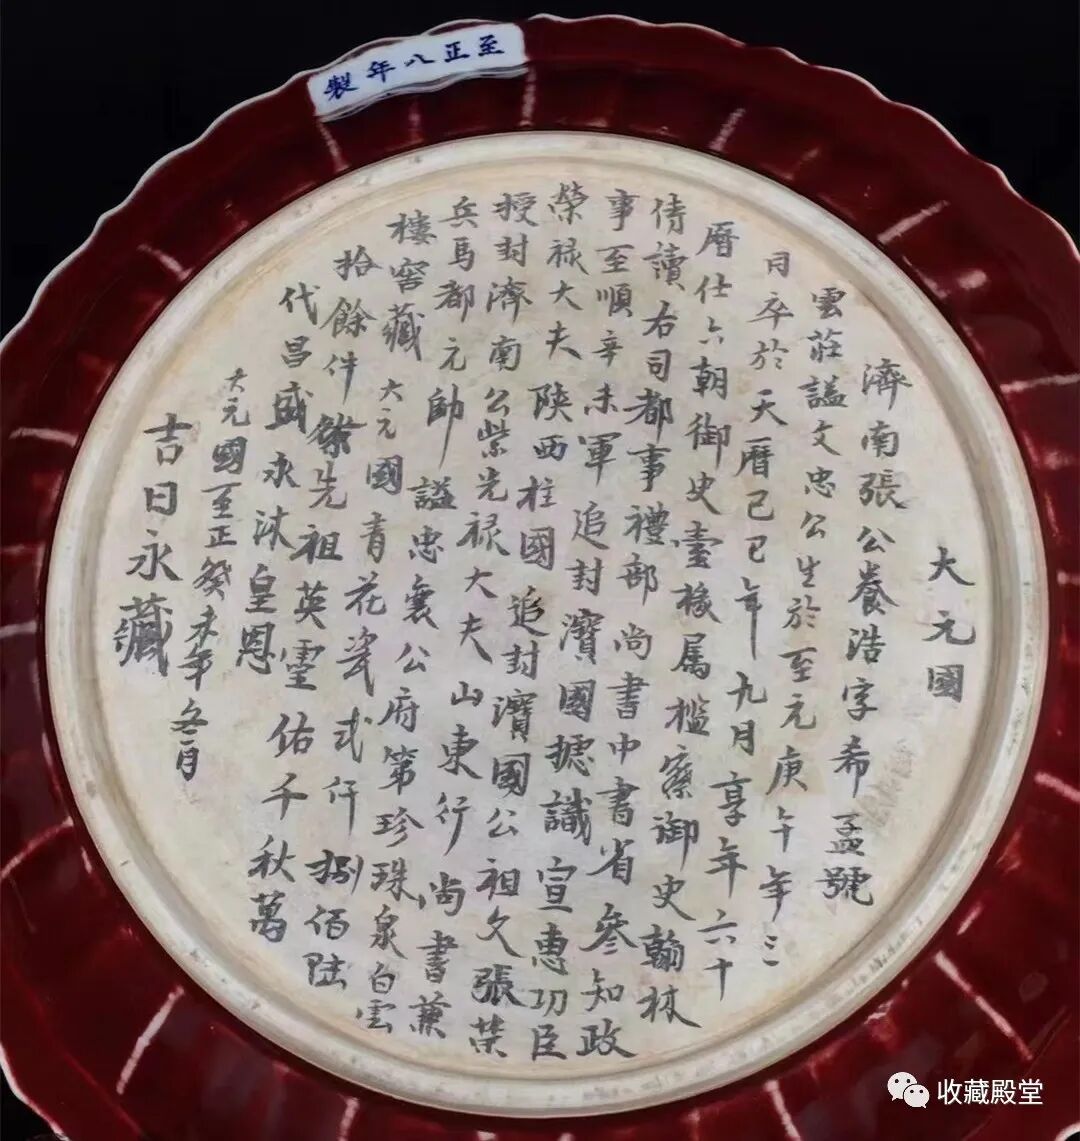 至正八年製
大元國
濟南張公養浩字希孟號
雲莊謚文忠公生於至元庚午年三
月卒於天曆己巳年九月享年六十
曆仕六朝御史臺掾属檻察御史翰林
侍讀右司都事禮部尚書中書省參知政
事至順辛未軍追封濱國摅識宣惠功臣
榮禄大夫陕西柱國追封濱國公祖父張榮
授封濟南公紫光禄大夫山東行尚書兼
兵馬都元帥謚忠襄公府第珍珠泉白雲
樓窖藏大元國青花瓷弍仟捌佰陆
拾餘件先祖英霊佑千秋萬
代昌盛永沐皇恩
大元國至正癸未年冬月
吉日永藏
收藏殿堂